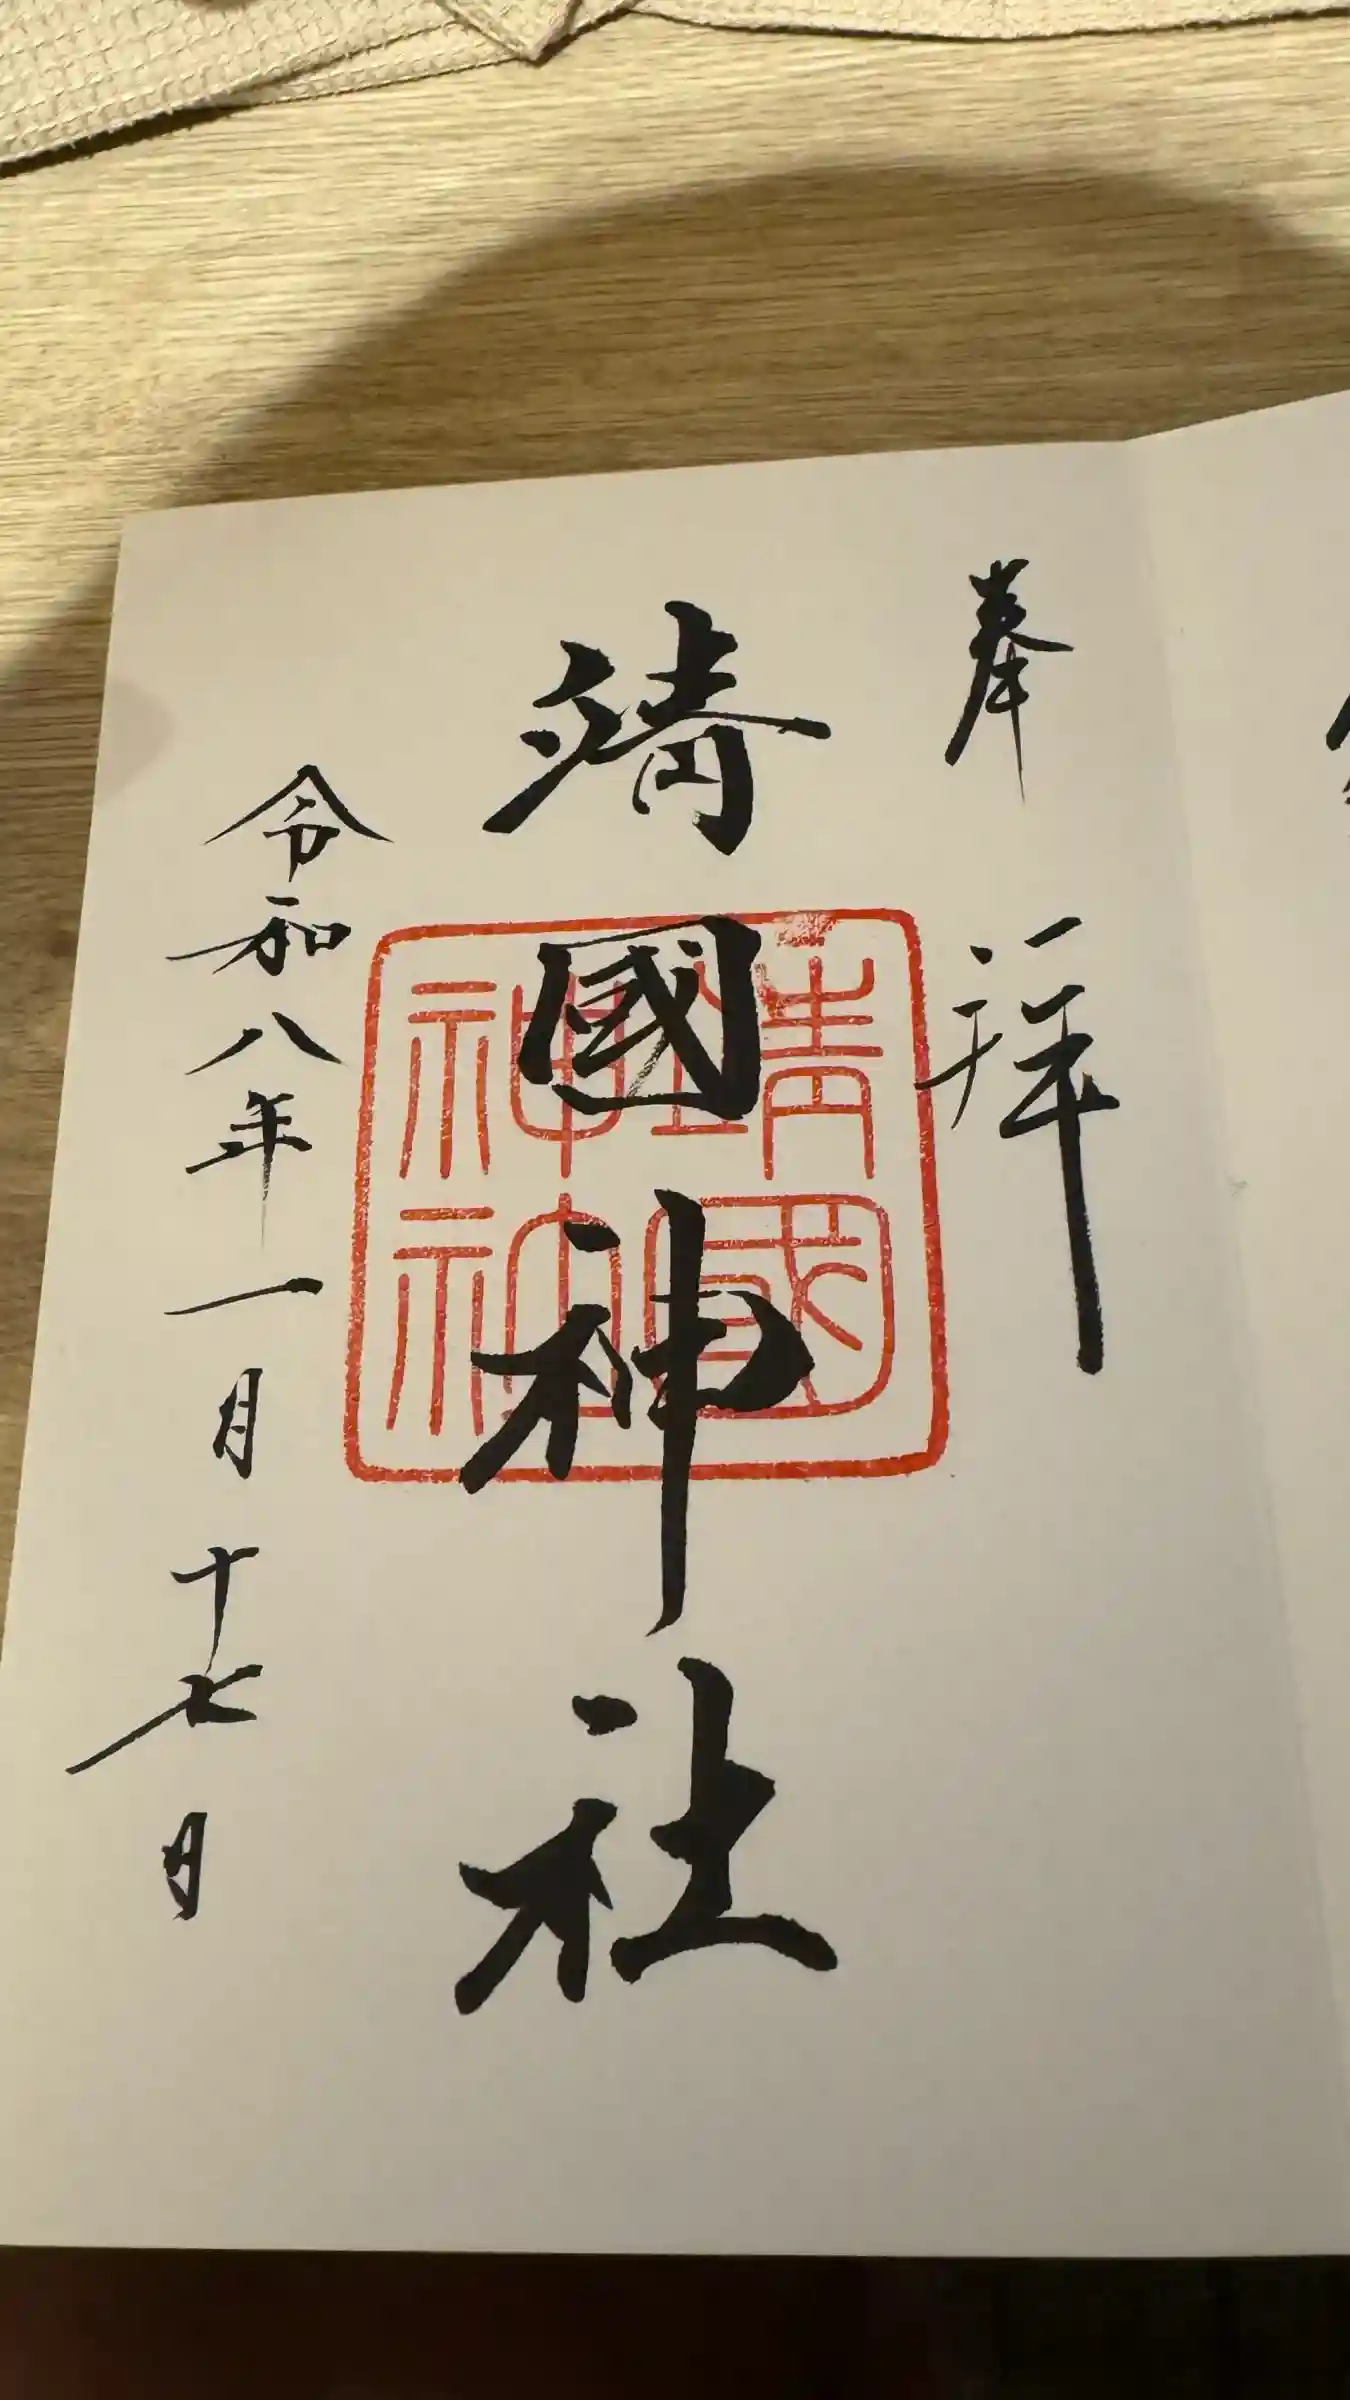 奉拝
靖國神社
靖國
神社
令和八年一月十七日